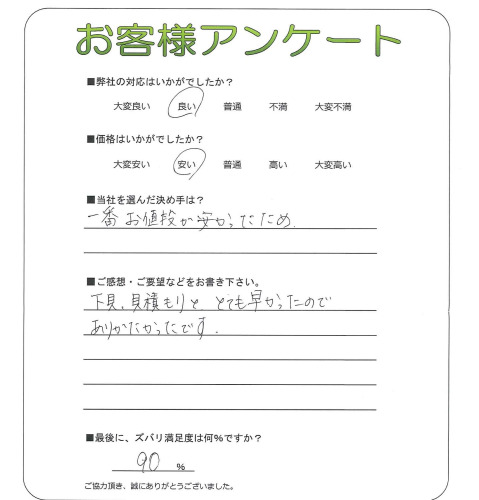 お客様アンケート
■弊社の対応はいかがでしたか?
大変良い 良い 普通 不満 大変不満
■価格はいかがでしたか?
大変安い 安い 普通 高い 大変高い
■当社を選んだ決め手は?
一番お値段が安かったため.
■ご感想・ご要望などをお書き下さい。
下見、見積もりと とても早かったので
ありがたかったです.
■最後に、ズバリ満足度は何%ですか?
90 %
ご協力頂き、誠にありがとうございました。